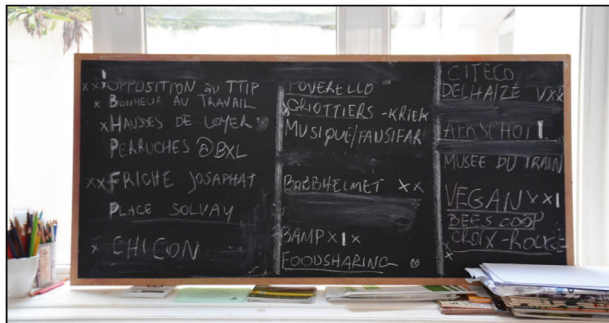 xxx OPPOSITION au TTIP
x BONHEUR AU TRAVAIL
x HAUSSES DE LOYER
PERRUCHES @BXL
xx FRICHE JOSAPHAT
PLACE SOLVAY
x CHICON
POVERELLO
GRIOTTIERS - KRIEK
MUSIQUE/FANSIFAR
BARBHELMET xx
BAMP x ! x
FOODSHARING
CITECO
DELHAIZE VXX
AERSCHOT !
MUSEE DU TRAIN
VEGAN xx!
BEES COOP
CROIX-ROUGE
x